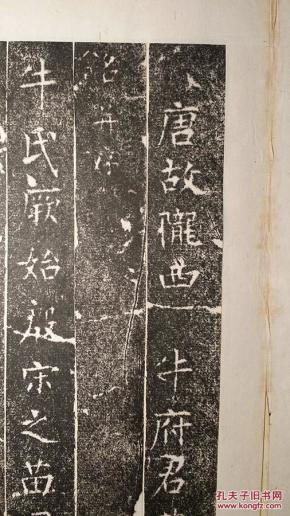 唐故隴西牛府君
銘并序
牛氏厥始殷宋之苗
孔夫子旧书网